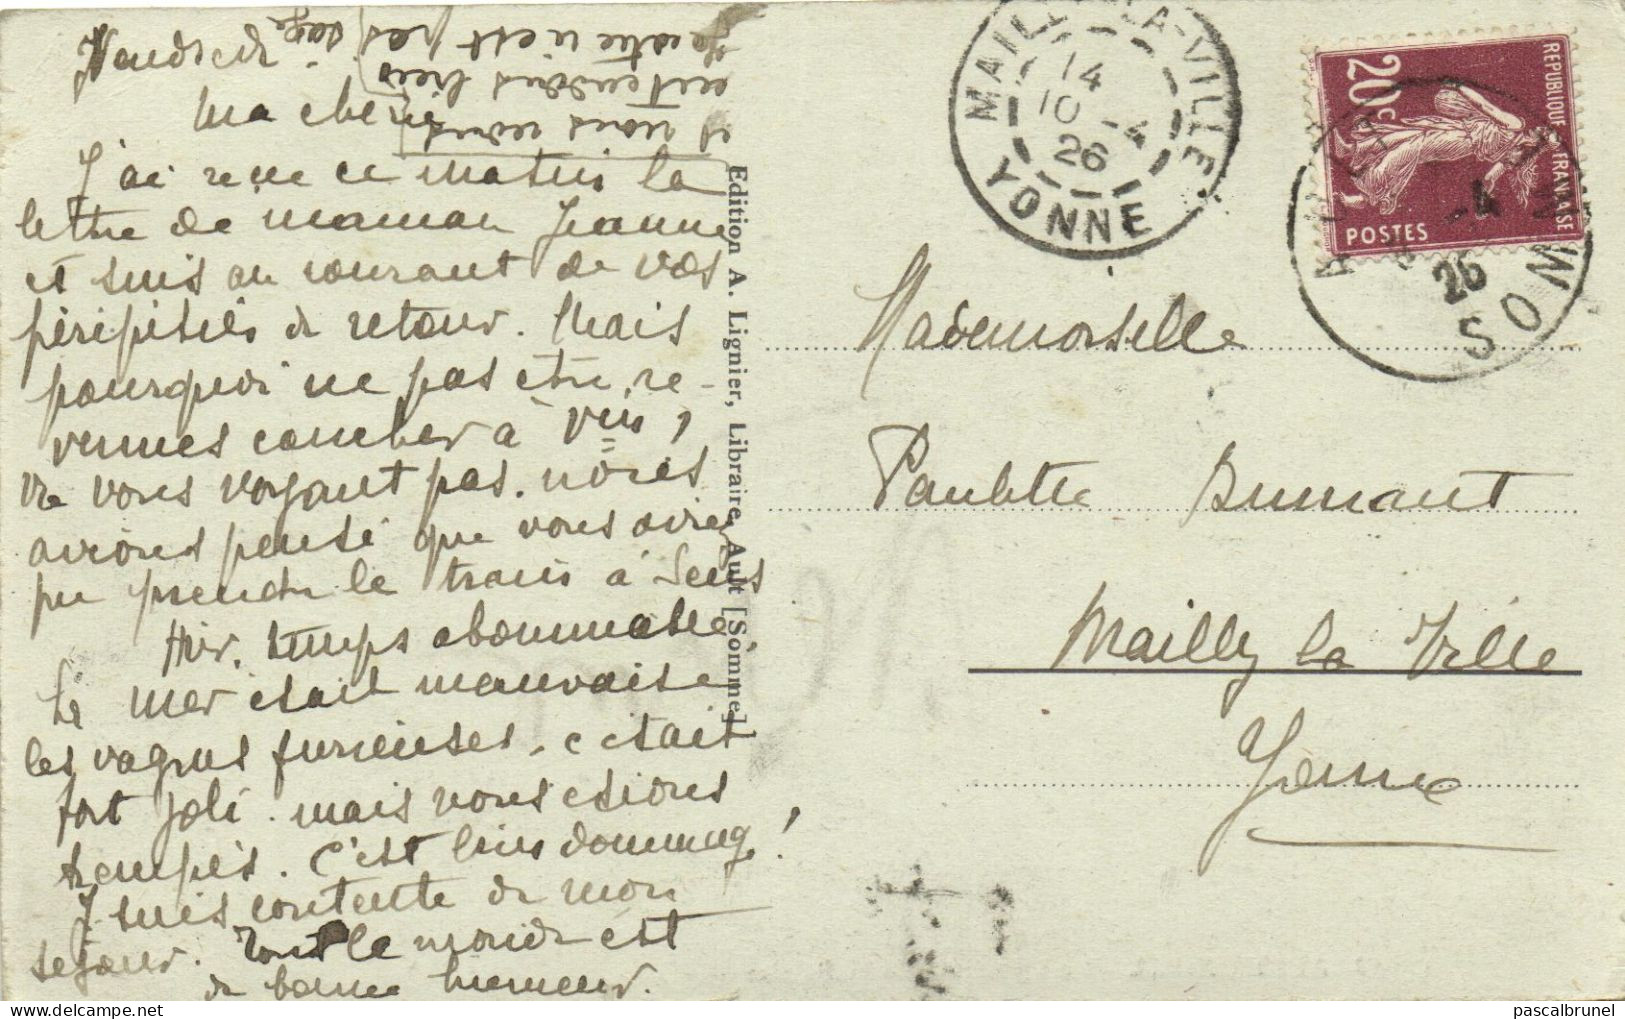 Vendredi.
Ma chérie
J'ai reçue ce matin la
lettre de maman Jeanne
et suis au courant de vos
péripéties de retour. Mais
pourquoi ne pas être re-
venues coucher à
ne vous voyant pas. nous
avions pensé que vous aviez
pu prendre le train à Sens
Hier. temps abominable
La mer était mauvaise
les vagues furieuses. c'était
fort joli. mais nous étions
trempés. C'est bien dommage!
J suis contente de mon
séjour. Tout le monde est
de bonne humeur.
et nous nous
entendons bien
n'est pas sage
Edition A. Lignier, Libraire, Ault [Somme]
MAILLY-LA-VILLE
14
10 -4
26
YONNE
REPUBLIQUE FRANÇAISE
20c
POSTES
-4
26
SOMME
Mademoiselle
Paulette Dumant
Mailly la Ville
Yonne
pascalbrunel